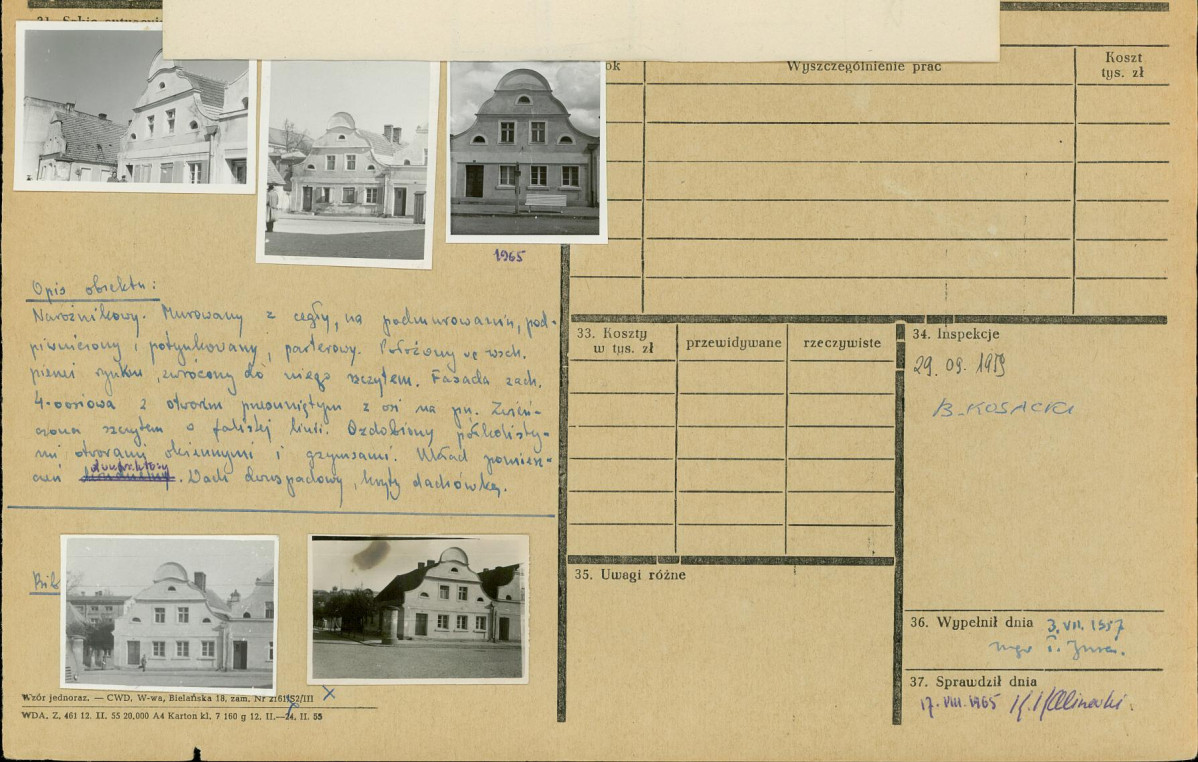 ok
Wyszczególnienie prac
Koszt
tys. zł
1965
Opis obiektu:
Narożnikowy. Murowany z cegły, na podmurowaniu, pod-
piwniczony i potynkowany, parterowy. Położony we wsch.
pierzei rynku, zwrócony do niego szczytem. Fasada zach.
4-osiowa z otworem przesuniętym z osi na pn. Zwień-
czona szczytem o falistej linii. Ozdobiony półkolisty-
mi otworami okiennymi i gzymsami. Układ pomiesz-
czeń dwutraktowy. Dach dwuspadowy, kryty dachówką.
33. Koszty
w tys. zł
przewidywane
rzeczywiste
34. Inspekcje
29. 09. 1959
B. KOSACKI
35. Uwagi różne
36. Wypełnił dnia 3. VII. 1957
mgr
37. Sprawdził dnia
17. VIII. 1965 Kalinowski.
Wzór jednoraz. — CWD, W-wa, Bielańska 18, zam. Nr
WDA. Z. 461 12. II. 55 20,000 A4 Karton kl. 7 160 g 12. II.—24. II. 55